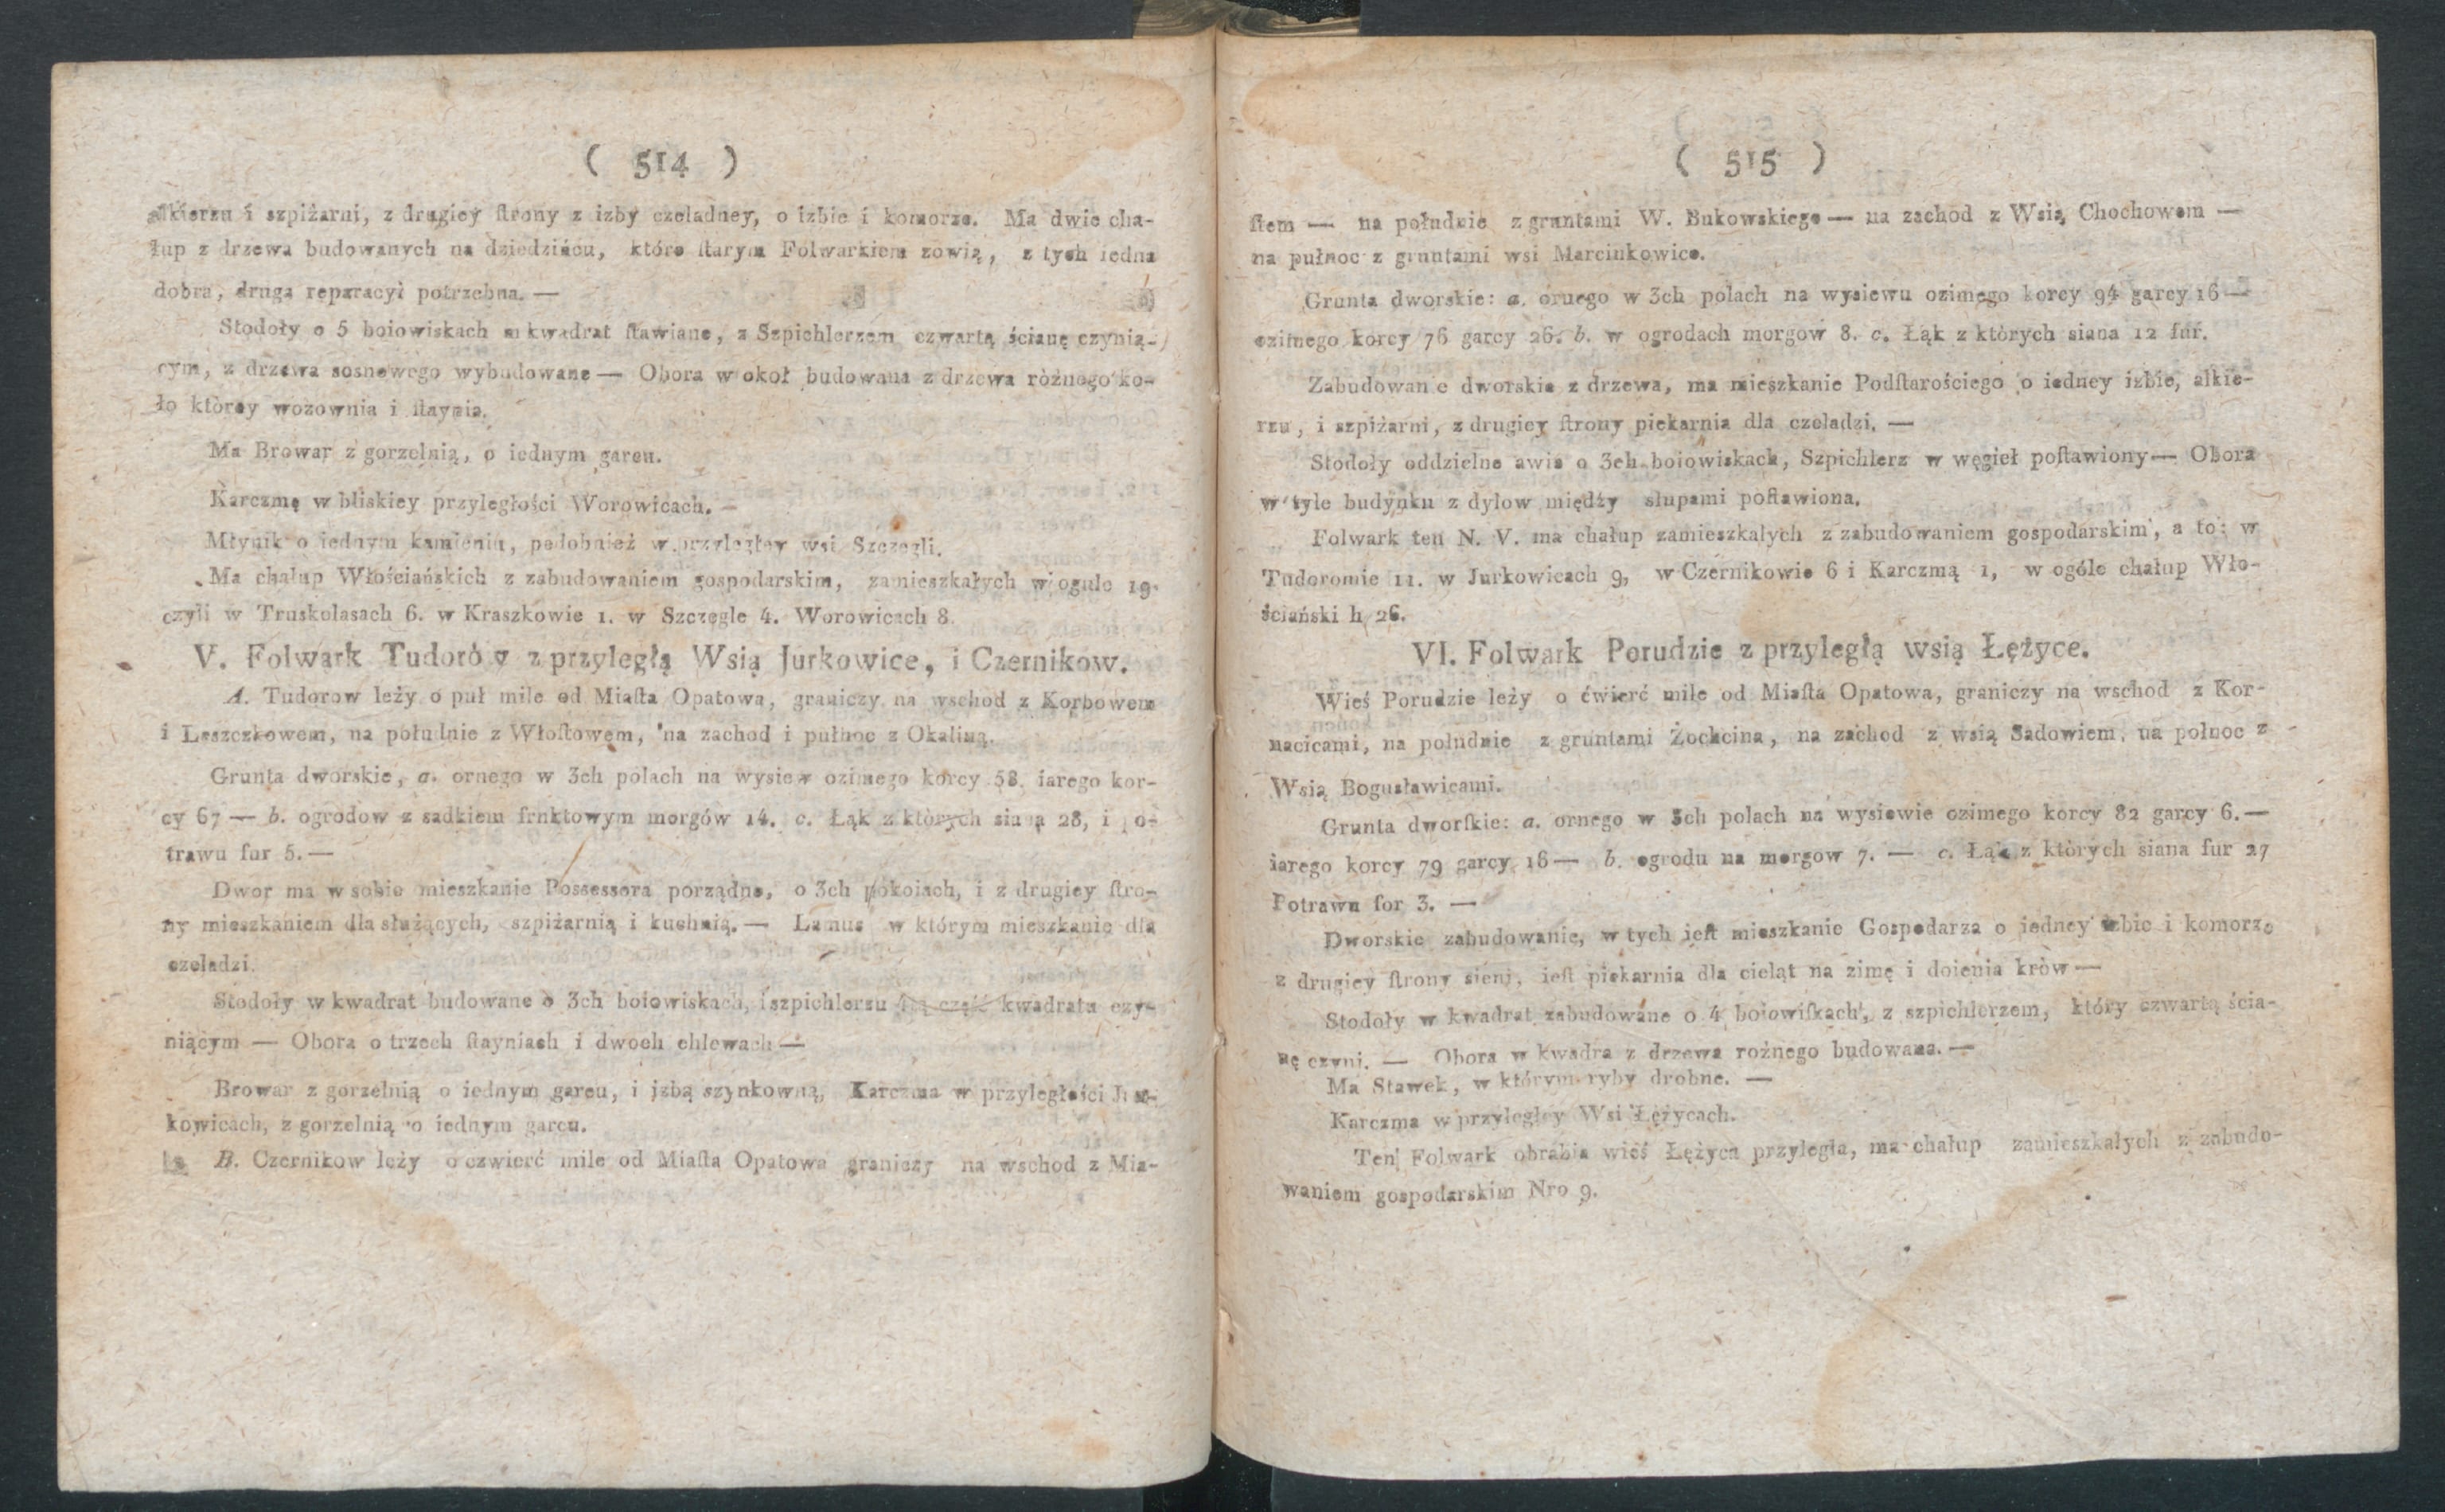 ( 514 )
alkierzu i szpiżarni, z drugiey ſtrony z izby czeladney, o izbie i komorze. Ma dwie cha-
łup z drzewa budowanych na dziedzińcu, które ſtarym Folwarkiem zowią, z tych iedna
dobra, druga reparacyi potrzebna. —
Stodoły o 5 boiowiskach w kwadrat ſtawiane, z Szpichlerzem czwartą ścianę czynią-
cym, z drzewa sosnowego wybudowane — Obora w okoł budowana z drzewa różnego ko-
ło którey wozownia i ſtaynia.
Ma Browar z gorzelnią, o iednym garcu.
Karczmę w bliskiey przyległości Worowicach. —
Młynik o iednym kamieniu, podobnież w przyległey wsi Szczegli.
Ma chałup Włościańskich z zabudowaniem gospodarskim, zamieszkałych w ogule 19.
czyli w Truskolasach 6. w Kraszkowie 1. w Szczegle 4. Worowicach 8.
V. Folwark Tudorów z przyległą Wsią Jurkowice, i Czernikow.
A. Tudorow leży o puł mile od Miaſta Opatowa, graniczy na wschod z Korbowem
i Leszczkowem, na południe z Włoſtowem, na zachod i pułnoc z Okaliną.
Grunta dworskie, a. ornego w 3ch polach na wysiew ozimego korcy 58. iarego kor-
cy 67 — b. ogrodow z sadkiem fruktowym morgów 14. c. Łąk z których siana 28, i po-
trawu fur 5. —
Dwor ma w sobie mieszkanie Possessora porządne, o 3ch pokoiach, i z drugiey ſtro-
ny mieszkaniem dla służących, szpiżarnią i kuchnią. — Lamus w którym mieszkanie dla
czeladzi.
Stodoły w kwadrat budowane o 3ch boiowiskach, i szpichlerzu 4tą część kwadratu czy-
niącym — Obora o trzech ſtayniach i dwoch chlewach —
Browar z gorzelnią o iednym garcu, i jzbą szynkowną, Karczma w przyległości Jur-
kowicach, z gorzelnią o iednym garcu.
B. Czernikow leży o czwierć mile od Miaſta Opatowa graniczy na wschod z Mia-
( 515 )
ſtem — na południe z gruntami W. Bukowskiego — na zachod z Wsią Chochowem —
na pułnoc z gruntami wsi Marcinkowice.
Grunta dworskie: a. ornego w 3ch polach na wysiewu ozimego korcy 94 garcy 16 —
ozimego korcy 76 garcy 26. b. w ogrodach morgow 8. c. Łąk z których siana 12 fur.
Zabudowanie dworskie z drzewa, ma mieszkanie Podſtarościego o iedney izbie, alkie-
rzu, i szpiżarni, z drugiey ſtrony piekarnia dla czeladzi. —
Stodoły oddzielne dwie o 3ch boiowiskach, Szpichlerz w węgieł poſtawiony — Obora
w tyle budynku z dylow między słupami poſtawiona.
Folwark ten N. V. ma chałup zamieszkałych z zabudowaniem gospodarskim, a to: w
Tudoromie 11. w Jurkowicach 9, w Czernikowie 6 i Karczmą 1, w ogóle chałup Wło-
ściański h 26.
VI. Folwark Porudzie z przyległą wsią Łężyce.
Wieś Porudzie leży o ćwierć mile od Miaſta Opatowa, graniczy na wschod z Kor-
nacicami, na południe z gruntami Żochcina, na zachod z wsią Sadowiem, na połnoc z
Wsią Bogusławicami.
Grunta dworſkie: a. ornego w 3ch polach na wysiewie ozimego korcy 82 garcy 6. —
iarego korcy 79 garcy 16 — b. ogrodu na morgow 7. — c. Łąk z których siana fur 27
Potrawu for 3. —
Dworskie zabudowanie, w tych ieſt mieszkanie Gospodarza o iedney izbie i komorze
z drugiey ſtrony sieni, ieſt piekarnia dla cieląt na zimę i doienia krów —
Stodoły w kwadrat zabudowane o 4 boiowiſkach, z szpichlerzem, który czwartą ścia-
nę czyni. — Obora w kwadra z drzewa rożnego budowana. —
Ma Stawek, w którym ryby drobne. —
Karczma w przyległey Wsi Łężycach.
Ten Folwark obrabia wieś Łężyca przyległa, ma chałup zamieszkałych z zabudo-
waniem gospodarskim Nro 9.